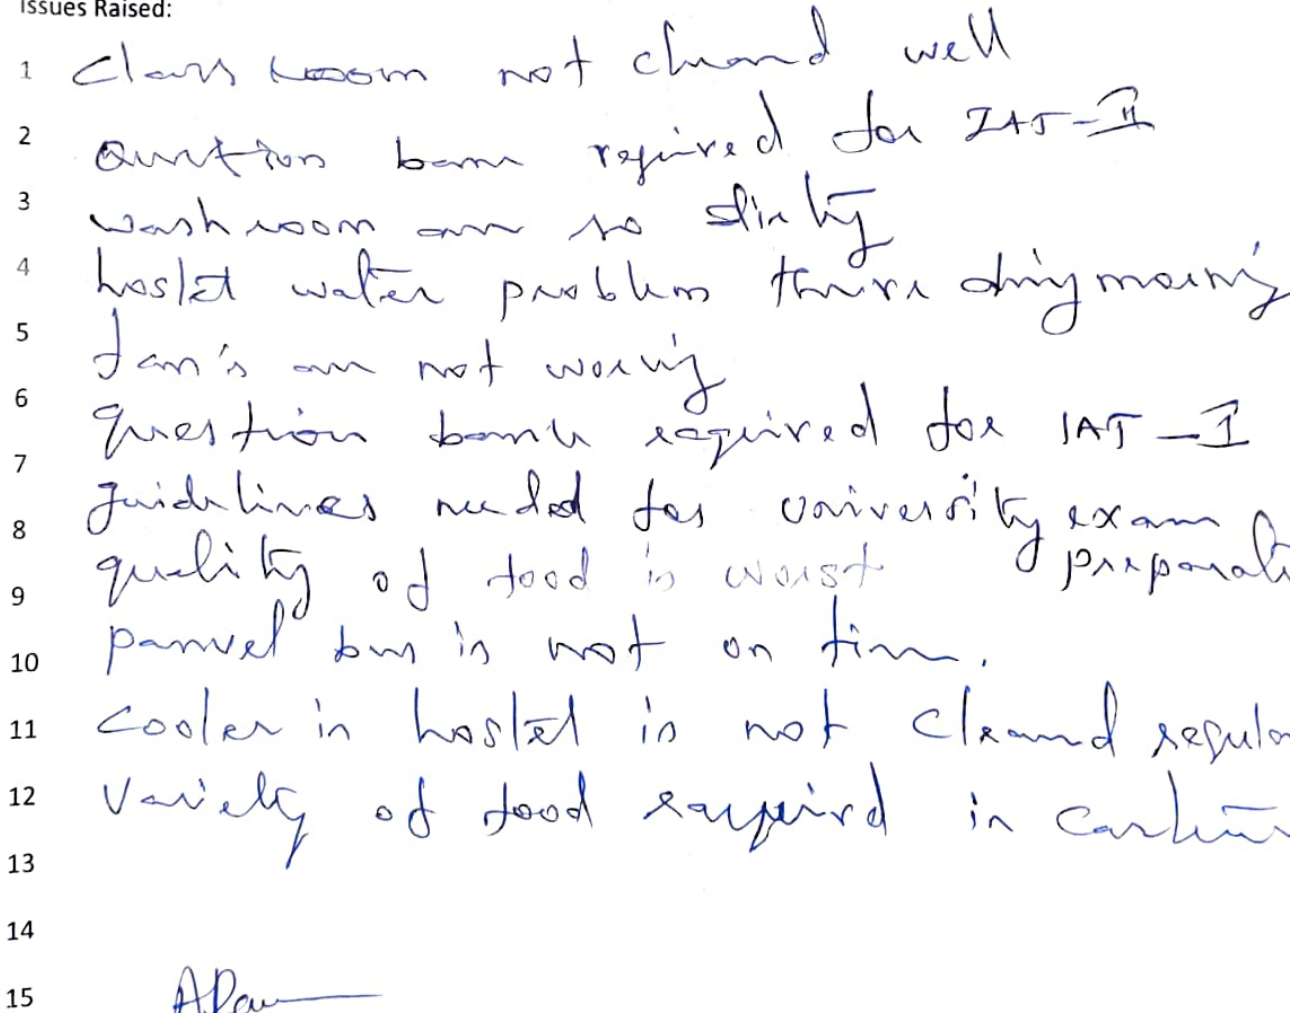 Issues Raised:
1 Class room not cleaned well
2 Question bank required for IAT-II
3 washroom are so dirty
4 hostel water problem there morning
5 fan's are not working
6 question bank required for IAT-I
7 guidelines needed for university exam
8 quality of food is worst preparati
9 panvel bus is not on time.
10 cooler in hostel is not cleaned regula
11 Variety of food required in
12
13
14
15